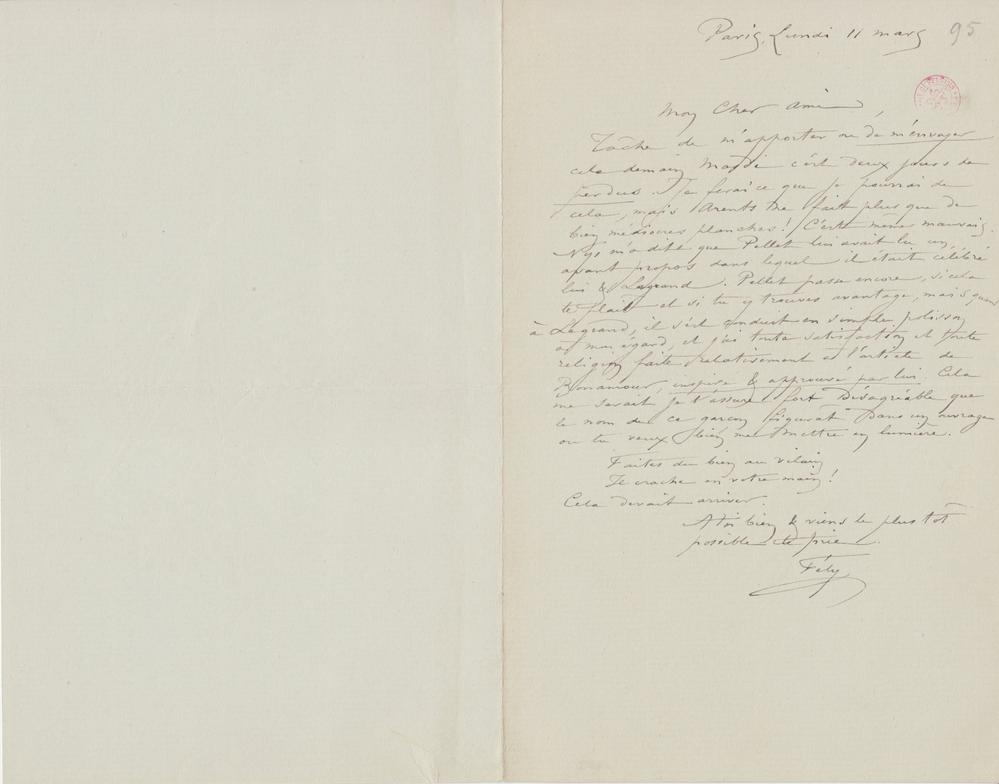 Paris, Lundi 11 mars 95
Mon Cher Ami,
Tâche de m'apporter ou de m'envoyer
cela demain Mardi c'est deux jours de
perdus. Je ferai ce que je pourrai de
cela, mais Arents me fait plus que de
bien médiocres planches! C'est même mauvais.
Nys m'a dit que Pellet lui avait lu un
avant propos dans lequel il était célébré
lui & Legrand. Pellet passe encore, si cela
te plait et si tu y trouves avantage, mais quant
à Legrand, il s'est conduit en simple polisson
à mon égard, et j'ai toute satisfaction et toute
religion faite relativement à l'article de
Bonamour, inspiré & approuvé par lui. Cela
me serait je t'assure, fort désagréable que
le nom de ce garçon figurât dans un ouvrage
où tu veux bien me mettre en lumière.
Faites du bien au vilain
Il crache en votre main!
Cela devait arriver.
A toi bien & viens le plus tôt
possible je te prie.
Fély